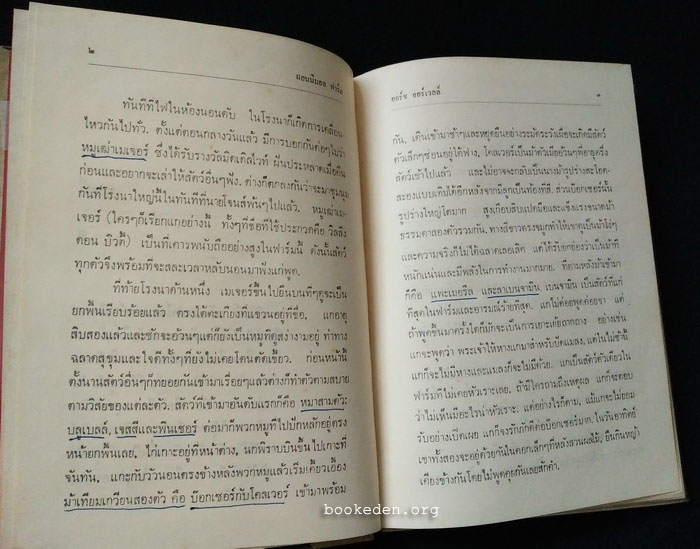 ๒
แอนนิมอล ฟาร์ม
ทันทีที่ไฟในห้องนอนดับ ในโรงนาก็เกิดการเคลื่อน
ไหวกันไปทั่ว. ตั้งแต่ตอนกลางวันแล้ว มีการบอกกันต่อๆไปว่า
หมูเฒ่าเมเจอร์ ซึ่งได้รับรางวัลมิดเดิลไวท์ ฝันประหลาดเมื่อคืน
ก่อนและอยากจะเล่าให้สัตว์อื่นๆฟัง. ต่างก็ตกลงกันว่าจะมาชุมนุม
กันที่โรงนาใหญ่นี้ในทันทีที่นายโจนส์พ้นๆไปแล้ว. หมูเฒ่าเม-
เจอร์ (ใครๆก็เรียกแกอย่างนี้ ทั้งๆที่ชื่อที่ใช้ประกวดคือ วิลลิง
ดอน บิวตี้) เป็นที่เคารพนับถืออย่างสูงในฟาร์มนี้ ดังนั้นสัตว์
ทุกตัวจึงพร้อมที่จะสละเวลาหลับนอนมาฟังแกพูด.
ที่ท้ายโรงนาด้านหนึ่ง เมเจอร์ขึ้นไปยืนบนที่ๆดูจะเป็น
ยกพื้นเรียบร้อยแล้ว ตรงใต้ตะเกียงที่แขวนอยู่ที่ขื่อ. แกอายุ
สิบสองแล้วและชักจะอ้วนๆแต่ก็ยังเป็นหมูที่ดูสง่างามอยู่ ท่าทาง
ฉลาดสุขุมและใจดีทั้งๆที่ยังไม่เคยโดนตัดเขี้ยว. ก่อนหน้านี้
ตั้งนานสัตว์อื่นๆก็ทยอยกันเข้ามาเรื่อยๆแล้วต่างก็ทำตัวตามสบาย
ตามวิสัยของแต่ละตัว. สัตว์ที่เข้ามาอันดับแรกก็คือ หมาสามตัว:
บลูเบลล์, เจสสี่และพินเชอร์ ต่อมาก็พวกหมูที่ไปปักหลักอยู่ตรง
หน้ายกพื้นเลย. ไก่เกาะอยู่ที่หน้าต่าง, นกพิราบบินขึ้นไปเกาะที่
จันทัน. แกะกับวัวนอนตรงข้างหลังพวกหมูแล้วเริ่มเคี้ยวเอื้อง
ม้าเทียมเกวียนสองตัว คือ บ๊อกเซอร์กับโคลเวอร์ เข้ามาพร้อม
ยอร์ช ออร์เวลล์
๓
กัน, เดินเข้ามาช้าๆและหยุดยืนอย่างระมัดระวังเผื่อจะเกิดมีสัตว์
ตัวเล็กๆซ่อนอยู่ใต้ฟาง. โคลเวอร์เป็นม้าตัวเมียอ้วนๆที่อายุครึ่ง
สัตว์เข้าไปแล้ว และไม่อาจจะกลับเป็นนางม้ารูปร่างสะโอด-
สะองแบบเดิมได้อีกหลังจากมีลูกเป็นท้องที่สี่. ส่วนบ๊อกเซอร์นั้น
รูปร่างใหญ่โตมาก สูงเกือบสิบแปดมือและแข็งแรงขนาดม้า
ธรรมดาสองตัวรวมกัน. ทางสีขาวตรงจมูกทำให้เขาดูเป็นม้าโง่ๆ
และความจริงก็ไม่ได้ฉลาดเลอเลิศ แต่ได้รับยกย่องว่าเป็นม้าที่
หนักแน่นและมีพลังในการทำงานมากมาย. ที่ตามหลังม้าเข้ามา
ก็คือ แพะเมอริล และลาเบนจามิน. เบนจามิน เป็นสัตว์ที่แก่
ที่สุดในฟาร์มและอารมณ์ร้ายที่สุด. แกไม่ค่อยพูดค่อยจา แต่
ถ้าพูดขึ้นมาครั้งใดก็มักจะเป็นการเยาะเย้ยถากถาง อย่างเช่น
แกจะพูดว่า พระเจ้าให้หางแกมาสำหรับปัดแมลง, แต่ในไม่ช้านี้
แกก็จะไม่มีหางและแมลงก็จะไม่มีด้วย. แกเป็นสัตว์ตัวเดียวใน
ฟาร์มที่ไม่เคยหัวเราะเลย. ถ้ามีใครถามถึงเหตุผล แกก็จะตอบ
ว่าไม่เห็นมีอะไรน่าหัวเราะ. แต่อย่างไรก็ตาม, แม้แกจะไม่ยอม
รับอย่างเปิดเผย แกก็จงรักภักดีต่อบ๊อกเซอร์มาก. ในวันอาทิตย์
เขาทั้งสองจะอยู่ด้วยกันในคอกเล็กๆที่หลังสวนผลไม้, ยืนกินหญ้า
เคียงข้างกันโดยไม่พูดคุยกันเลยสักคำ.
bookeden.org